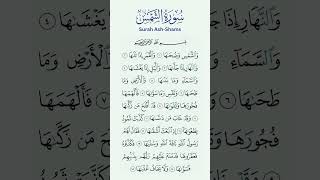 سُورَةُ الشَّمْسِ
Surah Ash-Shams
بِسْمِ اللَّهِ الرَّحْمَٰنِ الرَّحِيمِ
وَالشَّمْسِ وَضُحَىٰهَا ١ وَالْقَمَرِ إِذَا تَلَىٰهَا ٢
وَالنَّهَارِ إِذَا جَلَّىٰهَا ٣ وَاللَّيْلِ إِذَا يَغْشَىٰهَا ٤
وَالسَّمَآءِ وَمَا بَنَىٰهَا ٥ وَالْأَرْضِ وَمَا
طَحَىٰهَا ٦ وَنَفْسٍ وَمَا سَوَّىٰهَا ٧ فَأَلْهَمَهَا
فُجُورَهَا وَتَقْوَىٰهَا ٨ قَدْ أَفْلَحَ مَن زَكَّىٰهَا ٩
وَقَدْ خَابَ مَن دَسَّىٰهَا ١٠ كَذَّبَتْ ثَمُودُ
بِطَغْوَىٰهَا ١١ إِذِ انۢبَعَثَ أَشْقَىٰهَا ١٢ فَقَالَ لَهُمْ
رَسُولُ اللَّهِ نَاقَةَ اللَّهِ وَسُقْيَٰهَا ١٣ فَكَذَّبُوهُ
فَعَقَرُوهَا فَدَمْدَمَ عَلَيْهِمْ رَبُّهُم بِذَنۢبِهِمْ
فَسَوَّىٰهَا ١٤ وَلَا يَخَافُ عُقْبَٰهَا ١٥